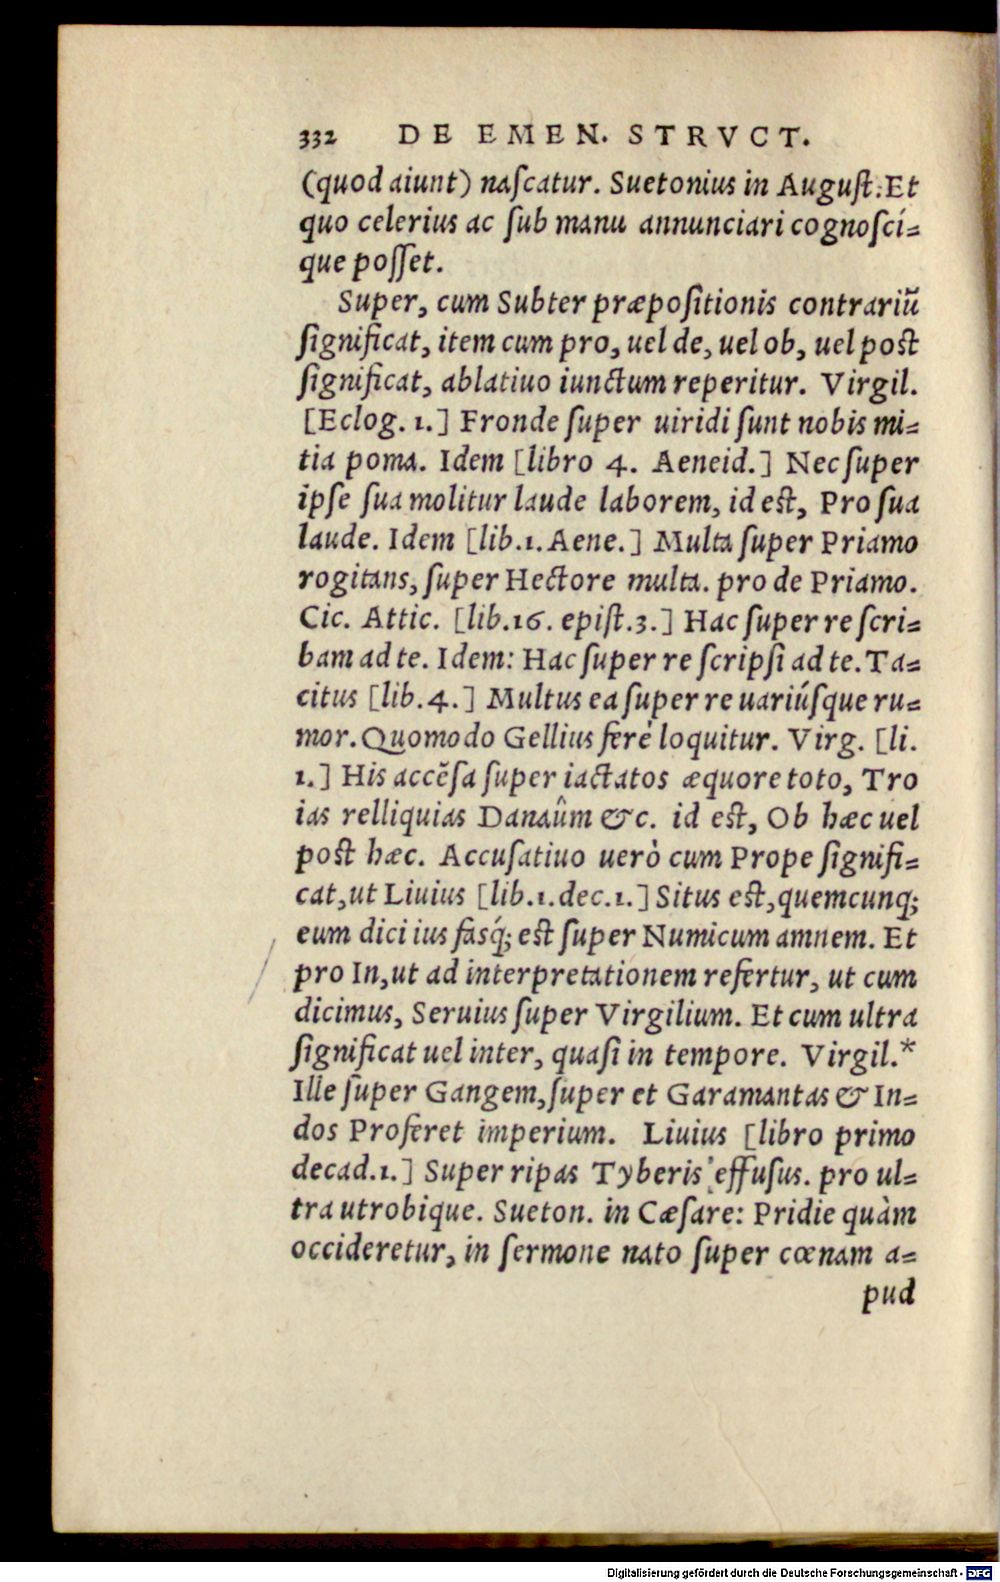 332 DE EMEN. STRVCT.
(quod aiunt) naſcatur. Suetonius in Auguſt.:Et
quo celerius ac ſub manu annunciari cognoſci=
que poſſet.
Super, cum Subter præpoſitionis contrariũ
ſignificat, item cum pro, uel de, uel ob, uel poſt
ſignificat, ablatiuo iunctum reperitur. Virgil.
[Eclog. 1.] Fronde ſuper uiridi ſunt nobis mi=
tia poma. Idem [libro 4. Aeneid.] Nec ſuper
ipſe ſua molitur laude laborem, id eſt, Pro ſua
laude. Idem [lib.1.Aene.] Multa ſuper Priamo
rogitans, ſuper Hectore multa. pro de Priamo.
Cic. Attic. [lib.16. epiſt.3.] Hac ſuper re ſcri=
bam ad te. Idem: Hac ſuper re ſcripſi ad te. Ta=
citus [lib.4.] Multus ea ſuper re uariúſque ru=
mor. Quomodo Gellius ferè loquitur. Virg. [li.
1.] His accẽſa ſuper iactatos æquore toto, Tro
ias relliquias Danaûm &c. id eſt, Ob hæc uel
poſt hæc. Accuſatiuo uerò cum Prope ſignifi=
cat, ut Liuius [lib.1.dec.1.] Situs eſt, quemcunq;
eum dici ius fasq́; eſt ſuper Numicum amnem. Et
pro In, ut ad interpretationem refertur, ut cum
dicimus, Seruius ſuper Virgilium. Et cum ultra
ſignificat uel inter, quaſi in tempore. Virgil.*
Ille ſuper Gangem, ſuper et Garamantas & In=
dos Proferet imperium. Liuius [libro primo
decad.1.] Super ripas Tyberis effuſus. pro ul=
tra utrobique. Sueton. in Cæſare: Pridie quàm
occideretur, in ſermone nato ſuper cœnam a=
pud
Digitalisierung gefördert durch die Deutsche Forschungsgemeinschaft - DFG